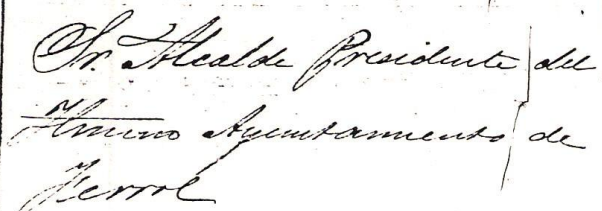 Sr. Alcalde Presidente del
Iltmo Ayuntamiento de
Ferrol